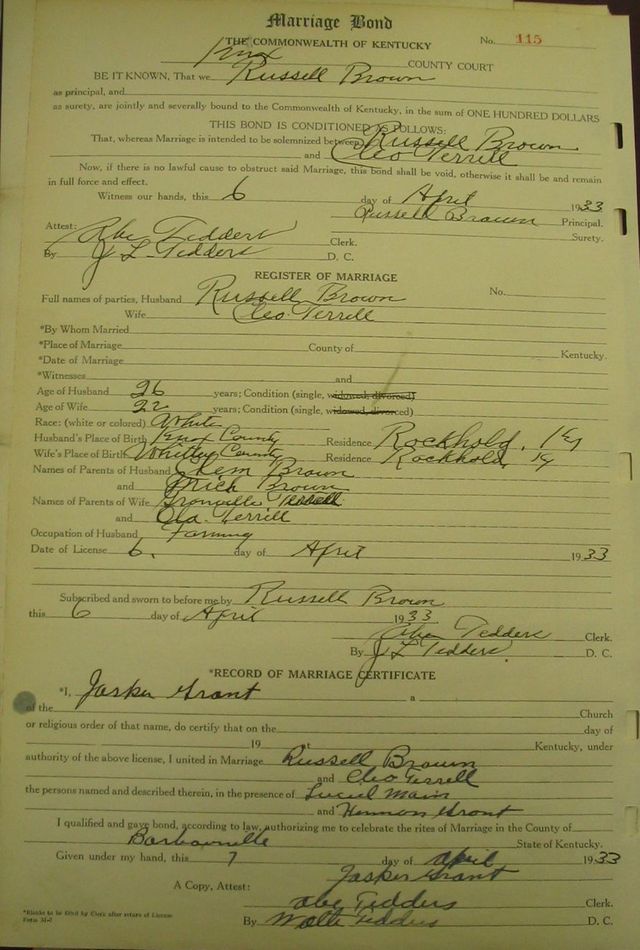 Marriage Bond
THE COMMONWEALTH OF KENTUCKY No. 115
Knox COUNTY COURT
BE IT KNOWN, That we Russell Brown
as principal, and
as surety, are jointly and severally bound to the Commonwealth of Kentucky, in the sum of ONE HUNDRED DOLLARS
THIS BOND IS CONDITIONED AS FOLLOWS:
That, whereas Marriage is intended to be solemnized between Russell Brown
and Cleo Terrill
Now, if there is no lawful cause to obstruct said Marriage, this bond shall be void, otherwise it shall be and remain
in full force and effect.
Witness our hands, this 6 day of April 1933
Russell Brown Principal.
Surety.
Attest: Abe Tedders Clerk.
By J L Tedders D. C.
REGISTER OF MARRIAGE
Full names of parties, Husband Russell Brown No.
Wife Cleo Terrill
*By Whom Married
*Place of Marriage County of Kentucky.
*Date of Marriage
*Witnesses and
Age of Husband 26 years; Condition (single, widowed, divorced)
Age of Wife 22 years; Condition (single, widowed, divorced)
Race: (white or colored) White
Husband's Place of Birth Knox County Residence Rockhold, Ky
Wife's Place of Birth Whitley County Residence Rockhold, Ky
Names of Parents of Husband Clem Brown
and Brown
Names of Parents of Wife Granville
and Terrill
Occupation of Husband Farming
Date of License 6. day of April 1933
Subscribed and sworn to before me by Russell Brown
this 6 day of April 1933
Abe Tedders Clerk.
By J L Tedders D. C.
*RECORD OF MARRIAGE CERTIFICATE
*I, Jasker Grant a
of the Church
or religious order of that name, do certify that on the day of
19 Kentucky, under
authority of the above license, I united in Marriage Russell Brown
and Cleo Terrell
the persons named and described therein, in the presence of Main
and Grant
I qualified and gave bond, according to law, authorizing me to celebrate the rites of Marriage in the County of
Barbourville State of Kentucky.
Given under my hand, this 7 day of April 1933
Jasker Grant
A Copy, Attest:
Abe Tedders Clerk.
By Tedders D. C.
*Blanks to be filled by Clerk after return of License